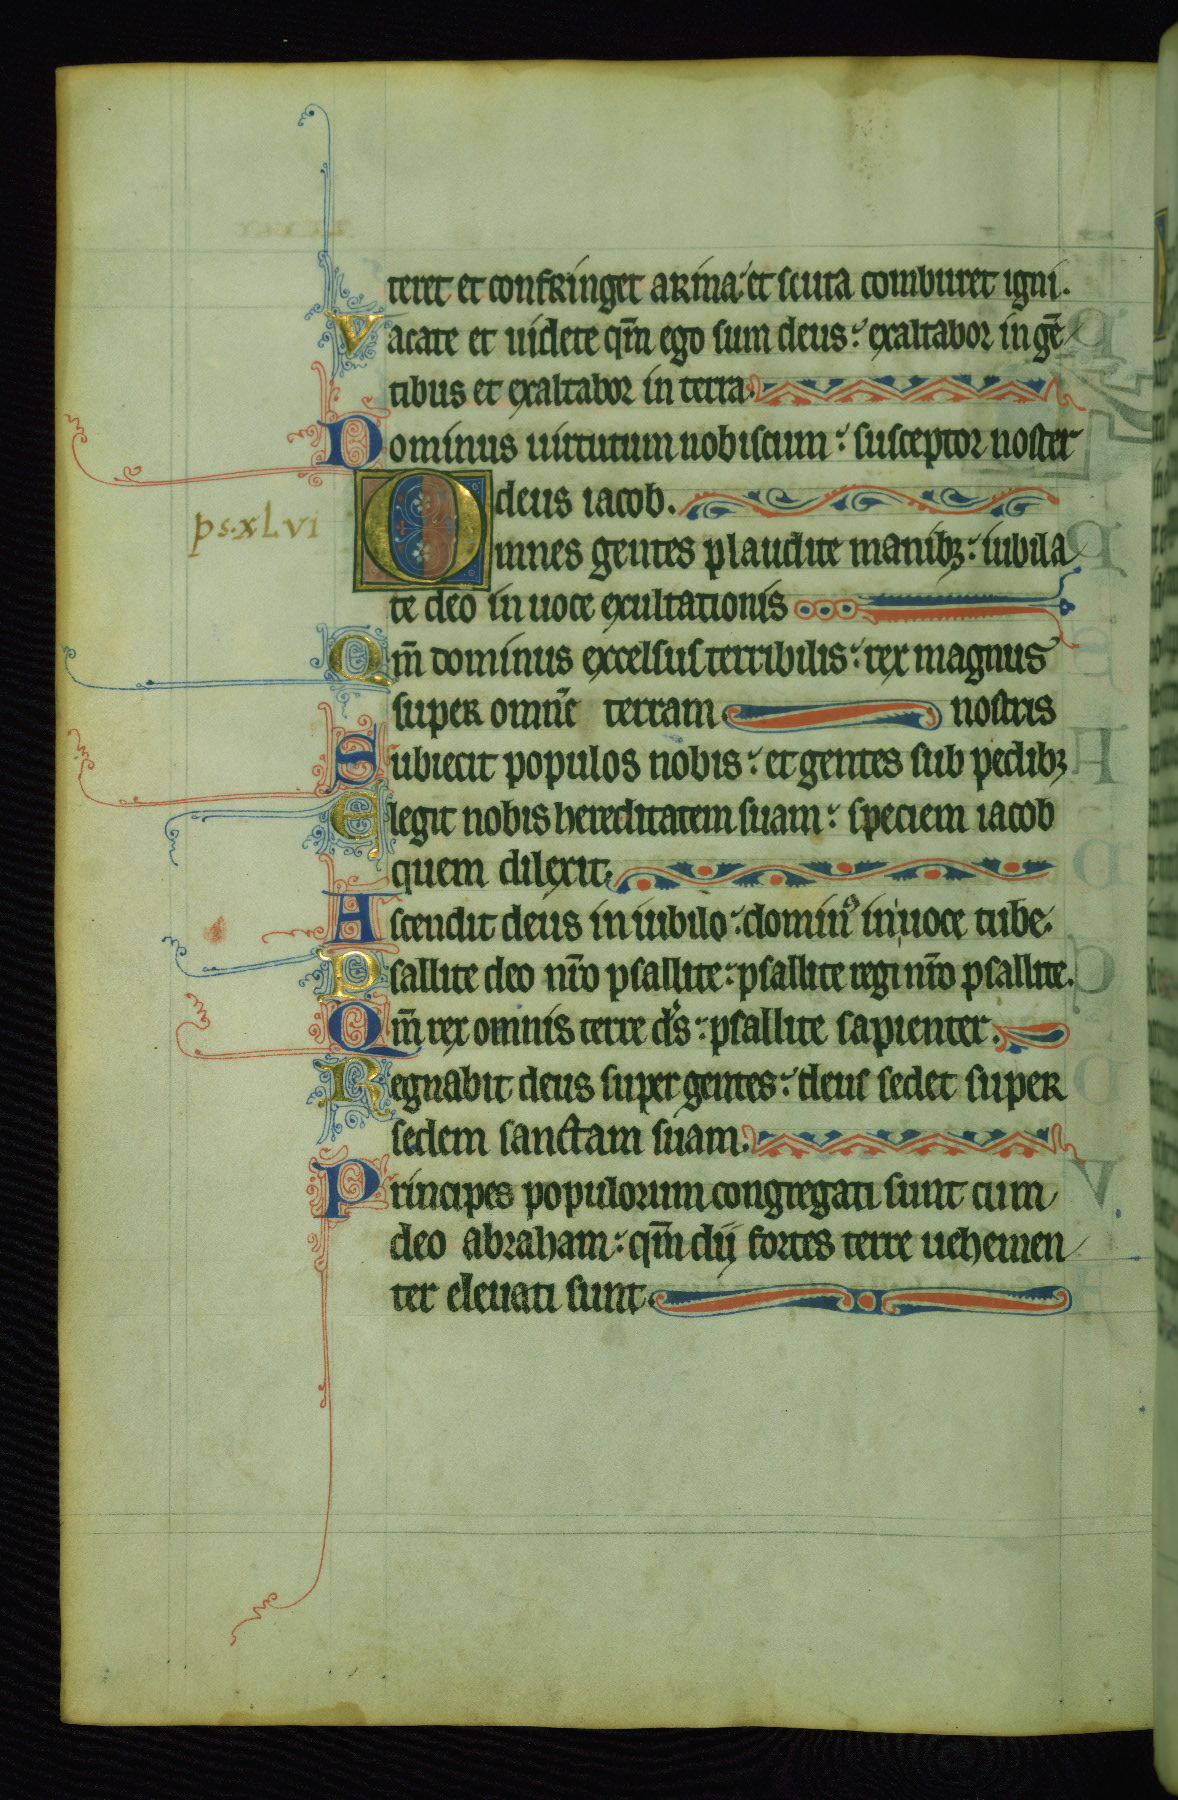 teret et confringet arma: et scuta comburet igni.
Vacate et uidete qm̄ ego sum deus: exaltabor in gē
tibus et exaltabor in terra.
Dominus uirtutum nobiscum: susceptor noster
deus iacob.
ps. xLvi
Omnes gentes plaudite manibꝫ: iubila
te deo in uoce exultationis
Qm̄ dominus excelsus terribilis: rex magnus
super omnē terram
nostris
Subiecit populos nobis: et gentes sub pedibꝫ
Elegit nobis hereditatem suam: speciem iacob
quem dilexit.
Ascendit deus in iubilo: dominꝰ in uoce tube.
Psallite deo nr̄o psallite: psallite regi nr̄o psallite.
Qm̄ rex omnis terre ds̄: psallite sapienter.
Regnabit deus super gentes: deus sedet super
sedem sanctam suam.
Principes populorum congregati sunt cum
deo abraham: qm̄ dij fortes terre uehemen
ter eleuati sunt.